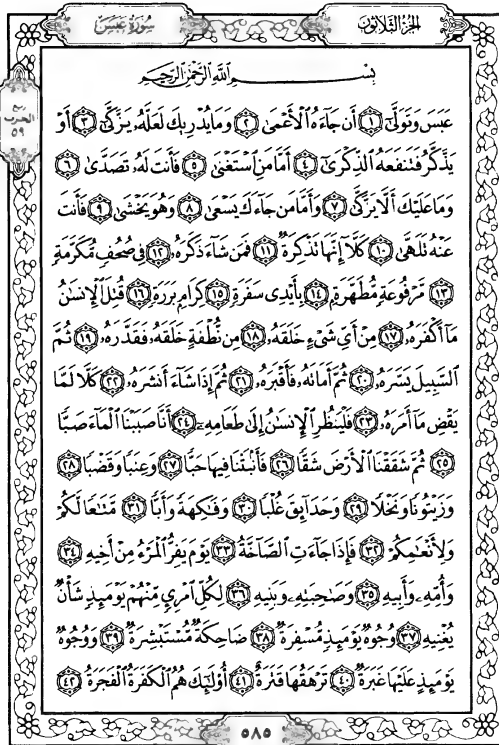 الجُزءُ الثَّلَاثُونَ
سُورَةُ عَبَسَ
ربع
الحزب
٥٩
بِسْمِ اللَّهِ الرَّحْمَٰنِ الرَّحِيمِ
عَبَسَ وَتَوَلَّىٰٓ ١ أَن جَآءَهُ ٱلْأَعْمَىٰ ٢ وَمَا يُدْرِيكَ لَعَلَّهُۥ يَزَّكَّىٰٓ ٣ أَوْ
يَذَّكَّرُ فَتَنفَعَهُ ٱلذِّكْرَىٰٓ ٤ أَمَّا مَنِ ٱسْتَغْنَىٰ ٥ فَأَنتَ لَهُۥ تَصَدَّىٰ ٦
وَمَا عَلَيْكَ أَلَّا يَزَّكَّىٰ ٧ وَأَمَّا مَن جَآءَكَ يَسْعَىٰ ٨ وَهُوَ يَخْشَىٰ ٩ فَأَنتَ
عَنْهُ تَلَهَّىٰ ١٠ كَلَّآ إِنَّهَا تَذْكِرَةٌ ١١ فَمَن شَآءَ ذَكَرَهُۥ ١٢ فِى صُحُفٍ مُّكَرَّمَةٍ
١٣ مَّرْفُوعَةٍ مُّطَهَّرَةٍۭ ١٤ بِأَيْدِى سَفَرَةٍ ١٥ كِرَامٍۭ بَرَرَةٍ ١٦ قُتِلَ ٱلْإِنسَٰنُ
مَآ أَكْفَرَهُۥ ١٧ مِنْ أَىِّ شَىْءٍ خَلَقَهُۥ ١٨ مِن نُّطْفَةٍ خَلَقَهُۥ فَقَدَّرَهُۥ ١٩ ثُمَّ
ٱلسَّبِيلَ يَسَّرَهُۥ ٢٠ ثُمَّ أَمَاتَهُۥ فَأَقْبَرَهُۥ ٢١ ثُمَّ إِذَا شَآءَ أَنشَرَهُۥ ٢٢ كَلَّا لَمَّا
يَقْضِ مَآ أَمَرَهُۥ ٢٣ فَلْيَنظُرِ ٱلْإِنسَٰنُ إِلَىٰ طَعَامِهِۦٓ ٢٤ أَنَّا صَبَبْنَا ٱلْمَآءَ صَبًّا
٢٥ ثُمَّ شَقَقْنَا ٱلْأَرْضَ شَقًّا ٢٦ فَأَنۢبَتْنَا فِيهَا حَبًّا ٢٧ وَعِنَبًا وَقَضْبًا ٢٨
وَزَيْتُونًا وَنَخْلًا ٢٩ وَحَدَآئِقَ غُلْبًا ٣٠ وَفَٰكِهَةً وَأَبًّا ٣١ مَّتَٰعًا لَّكُمْ
وَلِأَنْعَٰمِكُمْ ٣٢ فَإِذَا جَآءَتِ ٱلصَّآخَّةُ ٣٣ يَوْمَ يَفِرُّ ٱلْمَرْءُ مِنْ أَخِيهِ ٣٤
وَأُمِّهِۦ وَأَبِيهِ ٣٥ وَصَٰحِبَتِهِۦ وَبَنِيهِ ٣٦ لِكُلِّ ٱمْرِئٍ مِّنْهُمْ يَوْمَئِذٍ شَأْنٌ
يُغْنِيهِ ٣٧ وُجُوهٌ يَوْمَئِذٍ مُّسْفِرَةٌ ٣٨ ضَاحِكَةٌ مُّسْتَبْشِرَةٌ ٣٩ وَوُجُوهٌ
يَوْمَئِذٍ عَلَيْهَا غَبَرَةٌ ٤٠ تَرْهَقُهَا قَتَرَةٌ ٤١ أُو۟لَٰٓئِكَ هُمُ ٱلْكَفَرَةُ ٱلْفَجَرَةُ ٤٢
٥٨٥